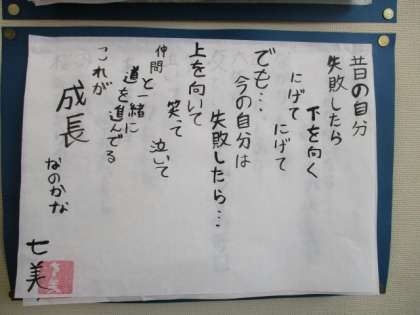 昔の自分
失敗したら
下を向く
にげて にげて
でも…
今の自分は
失敗したら…
上を向いて
笑って 泣いて
仲間と一緒に
道を進んでる
これが
成長
なのかな
七美